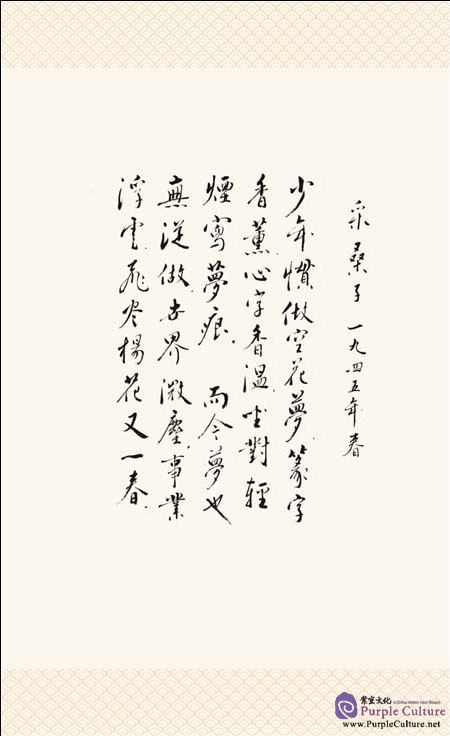 采桑子 一九四五年春
少年慣做空花夢篆字
香薰心字香溫坐對輕
煙寫夢痕 而今夢也
無從做世界微塵事業
浮雲飛尽楊花又一春
Purple Culture
www.PurpleCulture.net